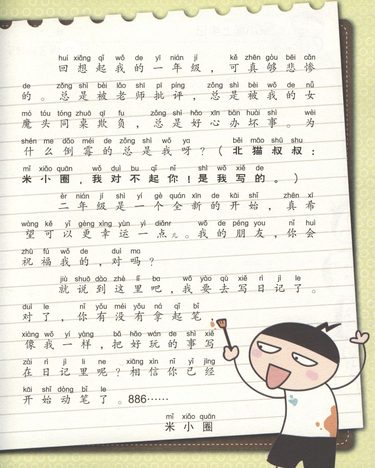 huí xiǎng qǐ wǒ de yī nián jí kě zhēn gòu bēi cǎn
回想起我的一年级，可真够悲惨
de zǒng shì bèi lǎo shī pī píng zǒng shì bèi wǒ de nǚ
的。总是被老师批评，总是被我的女
mó tóu tóng zhuō qī fu zǒng shì hǎo xīn bàn huài shì wèi
魔头同桌欺负，总是好心办坏事。为
shén me dǎo méi de zǒng shì wǒ ya běi māo shū shu
什么倒霉的总是我呀？（北猫叔叔：
mǐ xiǎo quān wǒ duì bu qǐ nǐ shì wǒ xiě de
米小圈，我对不起你！是我写的。）
èr nián jí shì yí gè quán xīn de kāi shǐ zhēn xī
二年级是一个全新的开始，真希
wàng kě yǐ gèng xìng yùn yì diǎnr wǒ de péng you nǐ huì
望可以更幸运一点儿。我的朋友，你会
zhù fú wǒ de duì ma
祝福我的，对吗？
jiù shuō dào zhè lǐ ba wǒ yào qù xiě rì jì le
就说到这里吧，我要去写日记了。
duì le nǐ yǒu méi yǒu ná qǐ bǐ
对了，你有没有拿起笔，
xiàng wǒ yí yàng bǎ hǎo wán de shì xiě
像我一样，把好玩的事写
zài rì jì lǐ ne xiāng xìn nǐ yǐ jīng
在日记里呢？相信你已经
kāi shǐ dòng bǐ le
开始动笔了。886……
mǐ xiǎo quān
米小圈